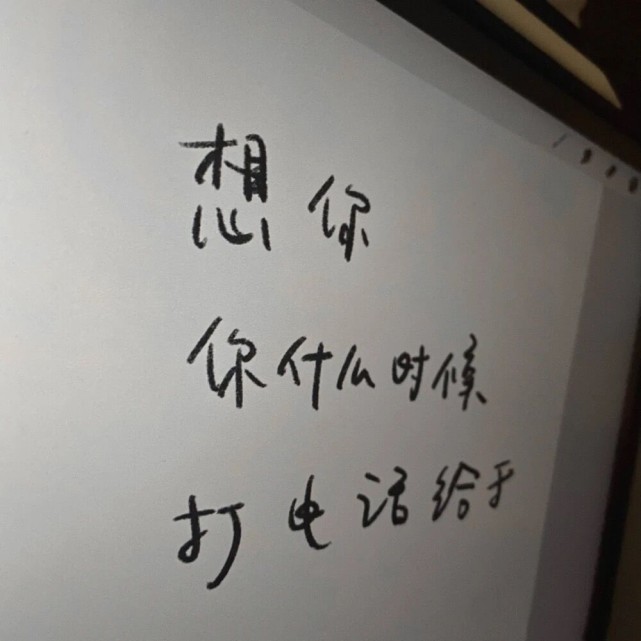 想你
你什么时候
打电话给于